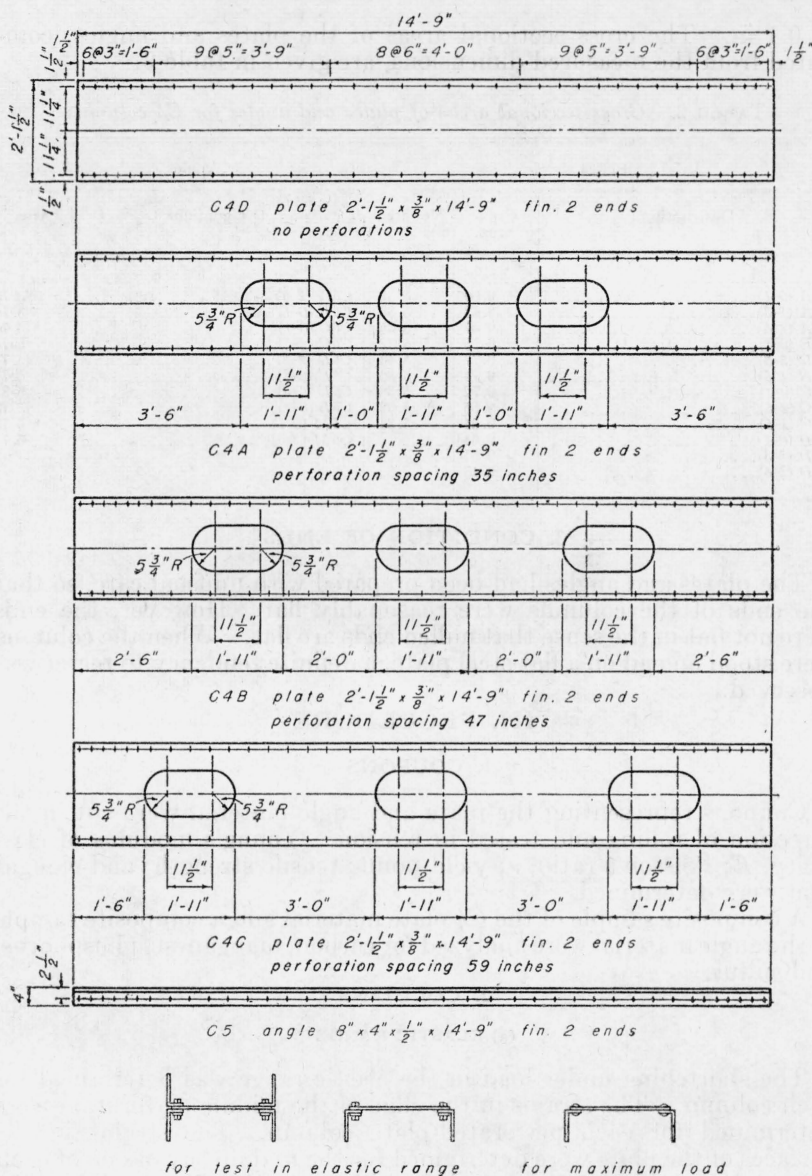 14'-9"
1 1/2" 6@3"=1'-6" 9@5"=3'-9" 8@6"=4'-0" 9@5"=3'-9" 6@3"=1'-6" 1 1/2"
1 1/2"
2'-1 1/2"
11 1/4"
11 1/4"
1 1/2"
C4D plate 2'-1 1/2" x 3/8" x 14'-9" fin. 2 ends
no perforations
5 3/4" R 5 3/4" R
11 1/2" 11 1/2" 11 1/2"
3'-6" 1'-11" 1'-0" 1'-11" 1'-0" 1'-11" 3'-6"
C4A plate 2'-1 1/2" x 3/8" x 14'-9" fin 2 ends
perforation spacing 35 inches
5 3/4" R 5 3/4" R
11 1/2" 11 1/2" 11 1/2"
2'-6" 1'-11" 2'-0" 1'-11" 2'-0" 1'-11" 2'-6"
C4B plate 2'-1 1/2" x 3/8" x 14'-9" fin. 2 ends
perforation spacing 47 inches
5 3/4" R 5 3/4" R
11 1/2" 11 1/2" 11 1/2"
1'-6" 1'-11" 3'-0" 1'-11" 3'-0" 1'-11" 1'-6"
C4C plate 2'-1 1/2" x 3/8" x 14'-9" fin. 2 ends
perforation spacing 59 inches
2 1/2"
4"
C5 angle 8" x 4" x 1/2" x 14'-9" fin. 2 ends
for test in elastic range for maximum load